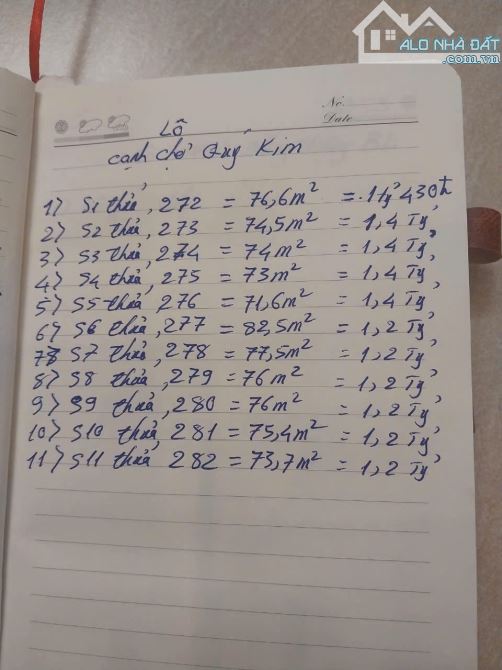 ALO NHÀ ĐẤT
.com.vn
No.
Date
Lô
cạnh chợ Quý Kim
1) S1 thửa, 272 = 76,6m² = 1 Tỷ 430tr
2) S2 thửa, 273 = 74,5m² = 1,4 Tỷ
3) S3 thửa, 274 = 74m² = 1,4 Tỷ
4) S4 thửa, 275 = 73m² = 1,4 Tỷ
5) S5 thửa, 276 = 71,6m² = 1,4 Tỷ
6) S6 thửa, 277 = 82,5m² = 1,2 Tỷ
7) S7 thửa, 278 = 77,5m² = 1,2 Tỷ
8) S8 thửa, 279 = 76m² = 1,2 Tỷ
9) S9 thửa, 280 = 76m² = 1,2 Tỷ
10) S10 thửa, 281 = 75,4m² = 1,2 Tỷ
11) S11 thửa, 282 = 73,7m² = 1,2 Tỷ